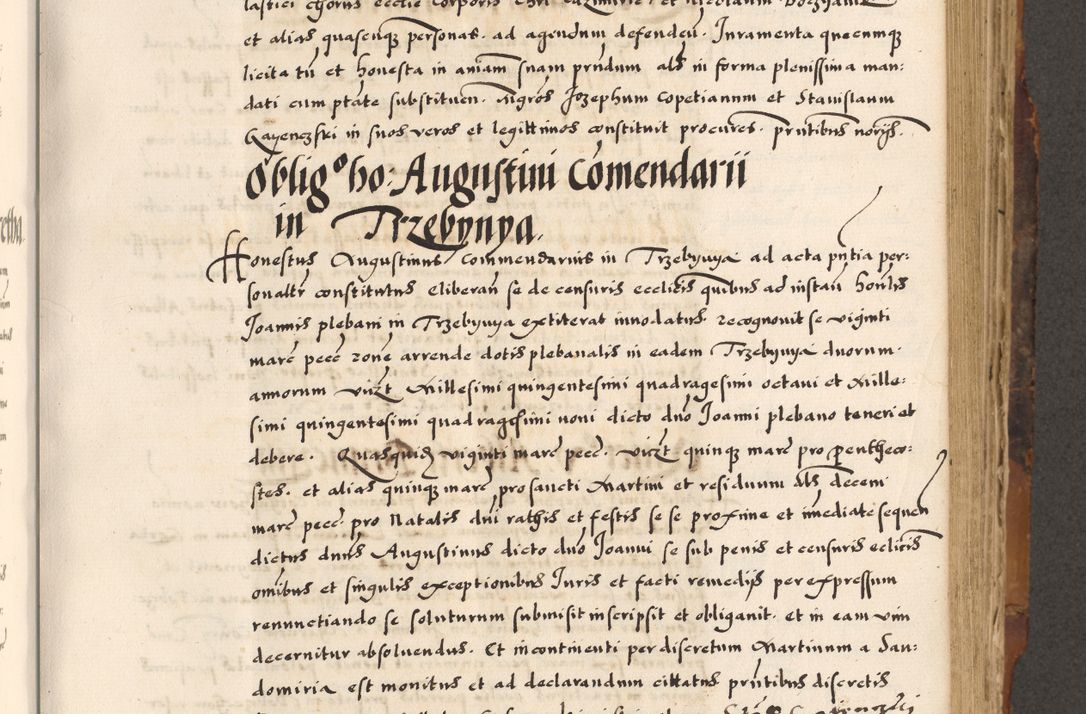 et alias quascunq personas ad agendum defendeñ. Iuramenta quecumq
licita tñ et honesta in aniam suam prñdum als in forma plenissima man:
dati cum ptãte substituen. Mgros Jozephum Copetianum et Stanislaum
in suos veros et legittimos constituit procures. pñtibus
Obligo ho: Augustini Comendarii
in Trzebynya.
Honestus Augustinus Commendarius in Trzebynya ad acta pñtia per:
sonalr constitutus eliberañ se de censuris ecclicis quibus ad instañ honlis
Joannis plebani in Trzebynya extiterat innodatus recognovit se viginti
marc pecc rone arrende dotis plebanalis in eadem Trzebynya duorum
annorum vizt Millesimi quingentesimi quadragesimi octaui et Mille:
simi quingentesimi quadragesimi noni dicto dño Joanni plebano teneri et
debere. Quasquid viginti marc pecc. vizt quinq marc pro pentheco:
stes. et alias quinq marc pro sancti Martini et residuum als decem
marc pecc pro Natalis dni et festis se se proxime et imediate sequeñ
dictus dnus Augustinus dicto dño Joanni se sub penis et censuris eclicis
omibus et singulis exceptionibus Juris et facti remedijs per expressum
renunctiando se soluturum submisit inscripsit et obligauit. et in eam vim
decernitur absoluendus. Et incontinenti per discretum Martinum a San:
domiria est monitus et ad declarandum cittatus pñtibus discretis